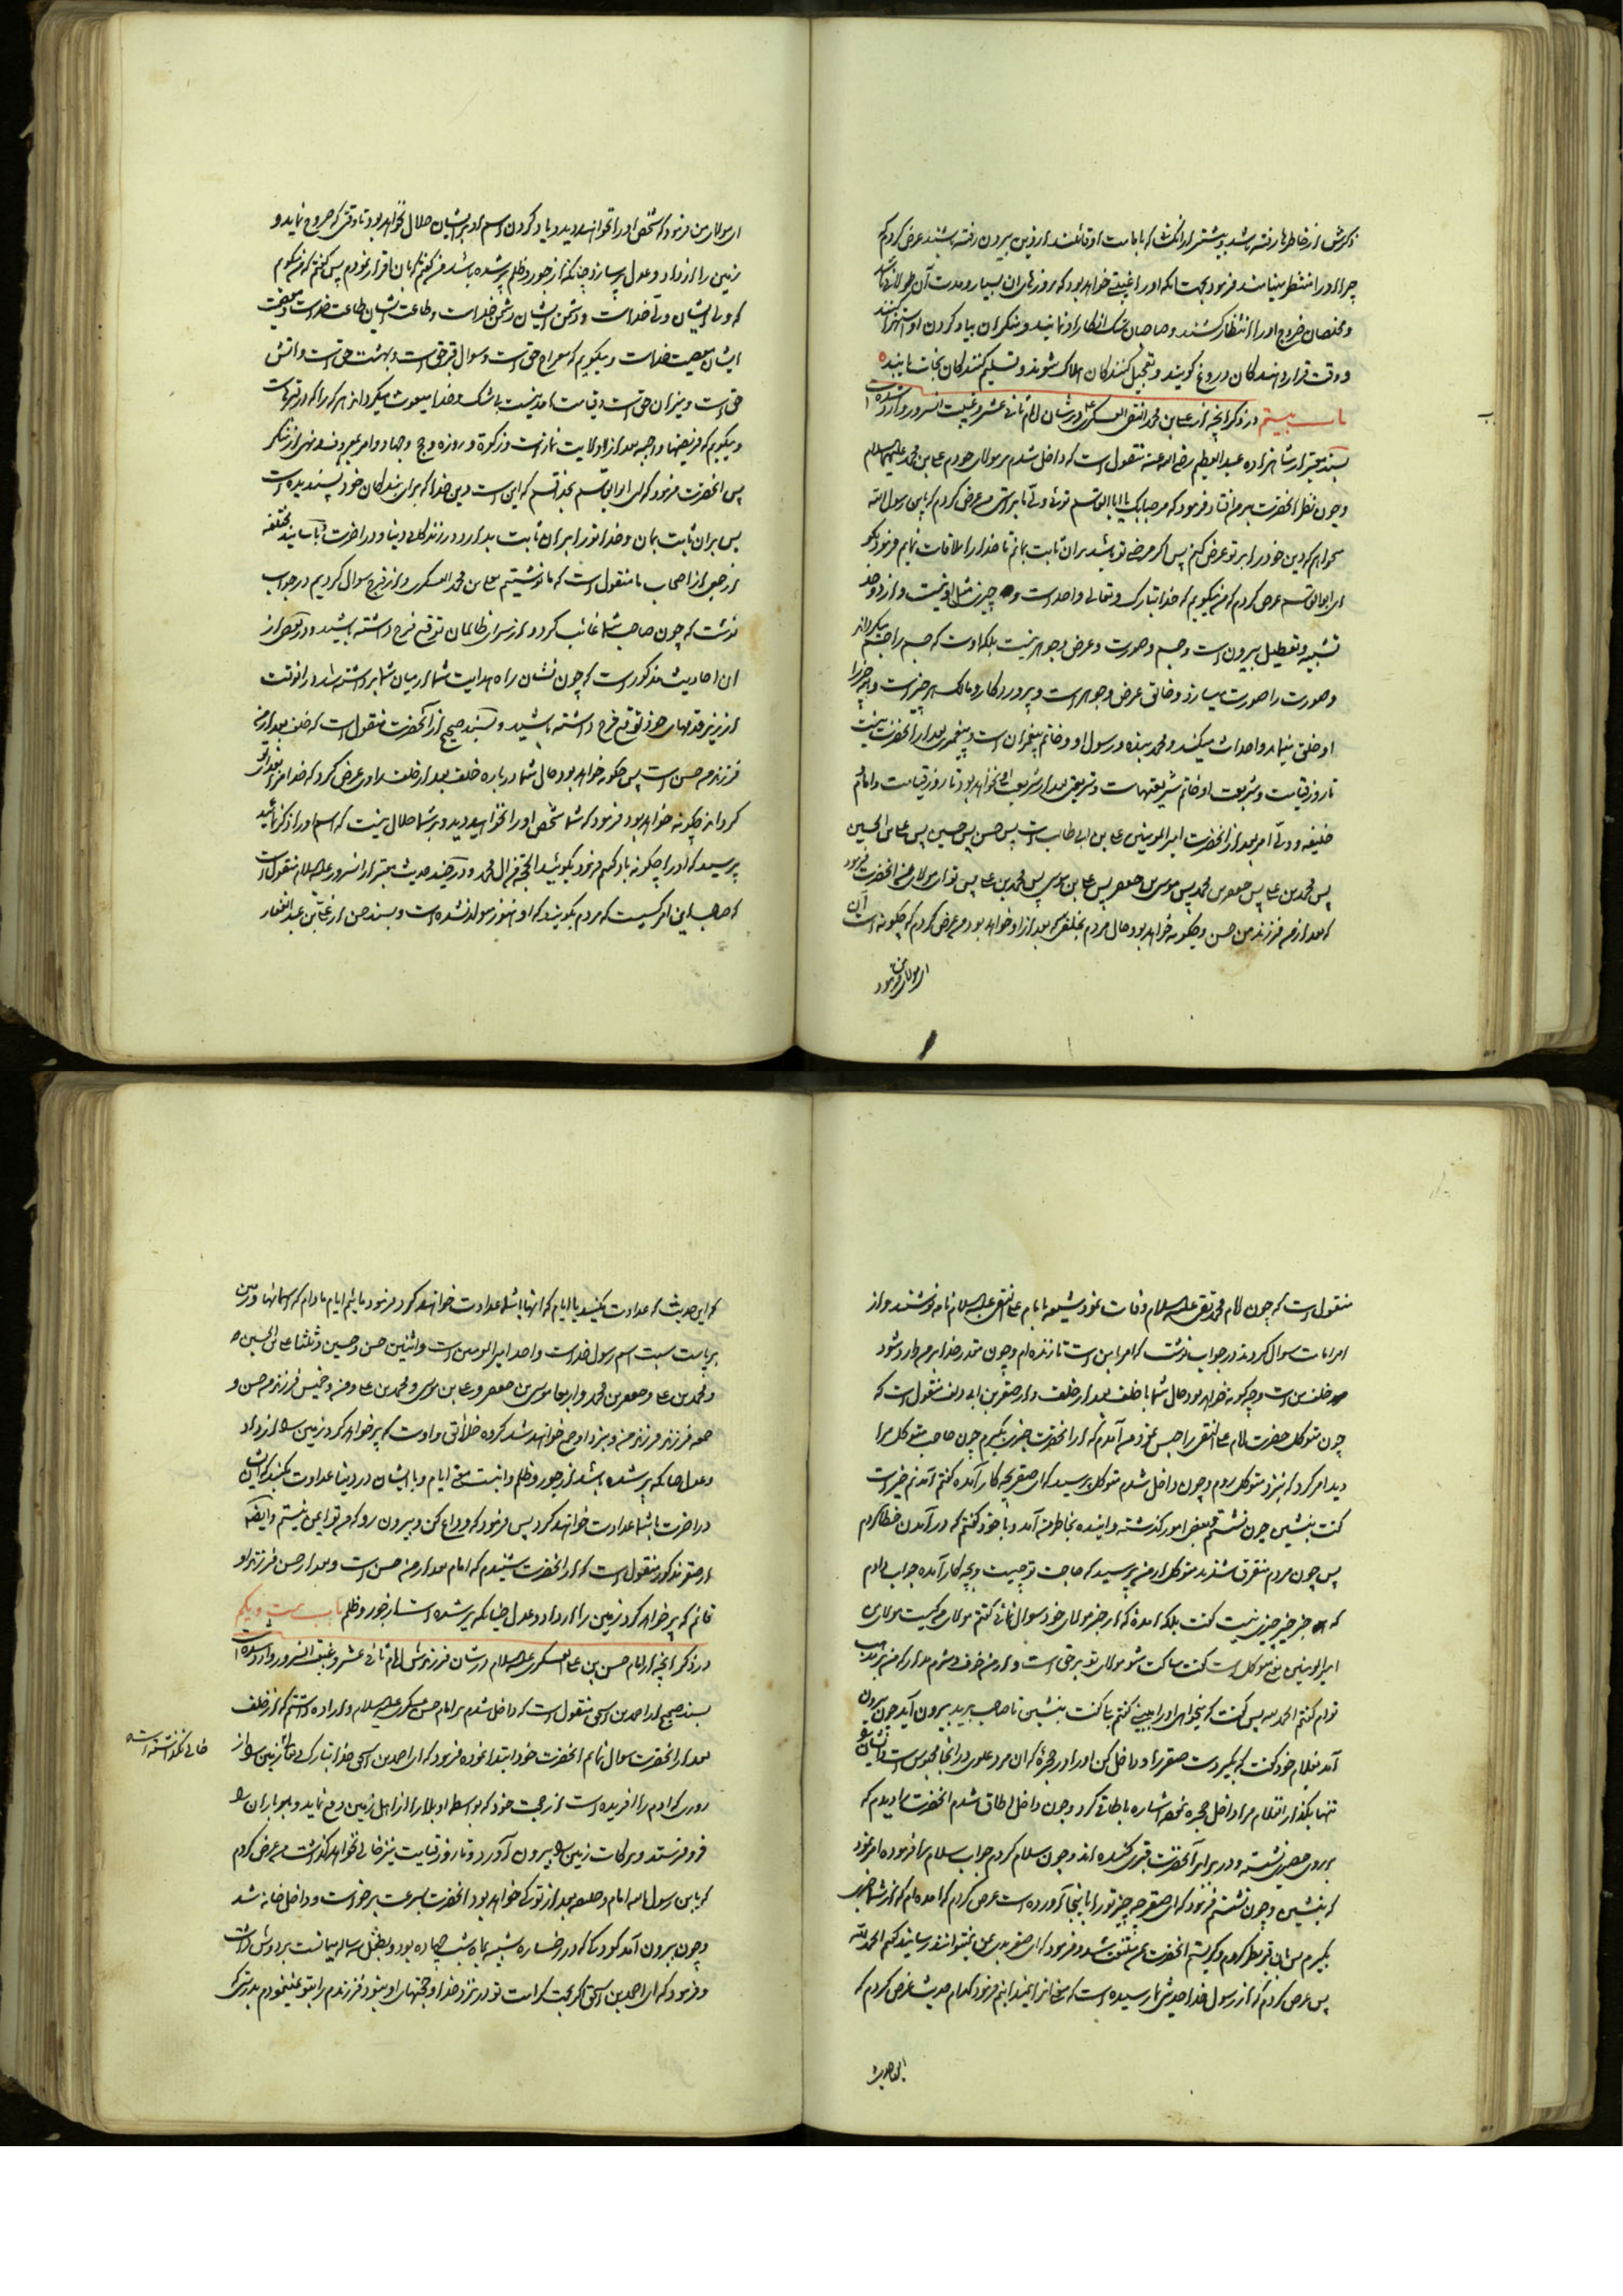 ذکرش از خاطرها رفته باشد و بیشتر از آنکشان که بامامت او قائلند از دین بیرون رفته باشند عرض کردم که
چرا او را منتظر مینامند فرمود بجهت آنکه او را غیبتی خواهد بود که روزهای آن بسیار و مدت آن طولانی باشد
و مخلصان خروج او را انتظار کشند و صاحبان شک انکار او نمایند و منکران بیاد کردن او استهزا کنند
و وقت قرار دهندکان دروغ گویند و تعجیل کنندکان هلاک شوند و تسلیم کنندکان نجات یابند
باب بیستم در ذکر آنچه از علی بن محمد النقی العسکری در شان امام ثانی عشر و غیبت آنسرور وارد شده است
بسند معتبر از شاهزاده عبد العظیم رضی الله عنه منقول است که داخل شدم بر مولای خودم علی بن محمد علیهما السلام
و چون نظر آنحضرت بر من افتاد فرمود که مرحبا بک یا ابا القاسم توئی ولی ما براستی من عرض کردم که یا بن رسول الله
میخواهم که دین خود را بر تو عرض کنم پس اگر مرضی تو باشد بر آن ثابت بمانم تا خدا را ملاقات نمایم فرمود بگو
ای ابو القاسم عرض کردم که من میگویم که خدا تبارک و تعالی واحد است و چیزی مثل او نیست و از دو حد
تشبیه و تعطیل بیرون است و جسم و صورت و عرض و جوهر نیست بلکه اوست که جسم را جسم میگرداند
و صورت را صورت میسازد و خالق عرض و جوهر است و پروردگار و مالک هر چیز است و همه چیز را
او خلق مینماید و احداث میکند و محمد بنده و رسول او و خاتم پیغمبران است و پیغمبری بعد از آنحضرت نیست
تا روز قیامت و شریعت او خاتم شریعتهاست و شریعتی بعد از شریعت او نخواهد بود تا روز قیامت و امام
خلیفه و ولی امر بعد از آنحضرت امیر المومنین علی بن ابی طالب است پس حسن پس حسین پس علی بن الحسین
پس محمد بن علی پس جعفر بن محمد پس موسی بن جعفر پس علی بن موسی پس محمد بن علی پس تو ای مولای من آنحضرت فرمود
که بعد از من فرزند من حسن و چگونه خواهد بود حال مردم بخلفی که بعد از او خواهد بود من عرض کردم که چگونه است آن
ای مولای من فرمود
ای مولای من فرمود که شخص او را نخواهند دید و یاد کردن اسم او بر ایشان حلال نخواهد بود تا وقتی که خروج نماید و
زمین را از داد و عدل پر سازد چنانکه از جور و ظلم پر شده باشد من گفتم که بآن اقرار نمودم پس گفتم که من میگویم
که ولی ایشان ولی خداست و دشمن ایشان دشمن خداست و طاعت ایشان طاعت خداست و معصیت
ایشان معصیت خداست و میگویم که معراج حق است و سوال قبر حق است و بهشت حق است و آتش
حق است و میزان حق است و قیامت آمدنیست بی شک و خدا مبعوث میگرداند هر که را که در قبرهاست
و میگویم که فریضهای واجبه بعد از ولایت نماز است و زکوة و روزه و حج و جهاد و امر بمعروف و نهی از منکر
پس آنحضرت فرمود که ای ابو القاسم بخدا قسم که این است دین خدا که برای بندکان خود پسندیده است
پس بر آن ثابت بمان و خدا تو را بر آن ثابت بدارد در زندگانی دنیا و در آخرت
از جمعی از اصحاب ما منقول است که ما نوشتیم بعلی بن محمد العسکری و از فرج سوال کردیم در جواب
نوشت که چون صاحب شما غائب گردد از سرای ظالمان توقع فرج داشته باشید و در بعضی از
آن احادیث مذکور است که چون نشان راه هدایت شما از میان شما برداشته شد در آنوقت
از زیر قدمهای خود توقع فرج داشته باشید و بسند صحیح از آنحضرت منقول است که خلف بعد از من
فرزند من حسن است پس چگونه خواهد بود حال شما در باره خلف بعد از خلف راوی عرض کرد که خدا مرا فدای تو
گرداند چگونه خواهد بود فرمود که شما شخص او را نخواهید دید و بر شما حلال نیست که اسم او را ذکر نمائید
پرسید که او را چگونه یاد کنیم فرمود بگوئید الحجة من آل محمد و در چند حدیث معتبر از آنسرور علیه السلام منقول است
که صاحب این امر کسیست که مردم بگویند که او هنوز مولد نشده است و بسند حسن از علی بن عبد الغفار
منقول است که چون امام محمد تقی علیه السلام وفات نمود شیعه بامام علی النقی علیه السلام نامه نوشتند و از
امر امامت سوال کردند در جواب نوشت که امر با من است تا زنده ام و چون مقدر خدا بر من وارد شود
خلف من است و چگونه خواهد بود حال شما با خلف بعد از خلف و از صقر بن ابی دلف منقول است که
چون متوکل حضرت امام علی النقی را حبس نمود من آمدم که از آنحضرت خبری بگیرم چون صاحب متوکل مرا
دید امر کرد که بنزد متوکل روم و چون داخل شدم متوکل پرسید که ای صقر بچه کار آمده گفتم آمدنم خیر است
گفت بنشین چون نشستم بعضی امور گذشته و آینده بخاطر من آمد و با خود گفتم که در آمدن خطا کردم
پس چون مردم متفرق شدند متوکل از من پرسید که حاجت تو چیست و بچه کار آمده جواب دادم
که جز خیر چیزی نیست گفت بلکه آمدهٔ که از خبر مولای خود سوال نمائی گفتم مولای من کیست مولای
امیر المومنین متوکل است گفت ساکت شو مولای تو بر حق است و از من خوف و شرم مدار که من بر مذهب
توام گفتم الحمد لله پس گفت که میخواهی او را ببینی گفتم بلی گفت بنشین تا صاحب برید بیرون آید چون بیرون
آمد بغلام خود گفت که بگیر دست صقر را و داخل کن او را در حجرهٔ که آن مرد علوی در آنجا محبوس است
تنها بگذار آنغلام مرا داخل حجره نمود اشاره باطاقی کرد و چون داخل اطاق شدم آنحضرت را دیدم که
بر روی حصیری نشسته و در برابر آنحضرت قبری کنده اند و چون سلام کردم جواب سلام مرا فرموده امر نمود
که بنشین و چون نشستم فرمود که ای صقر چه چیز تو را باینجا آورده است عرض کردم که آمده ام که از شما خبر
بگیرم پس بآن قبر نظر کردم و گریستم آنحضرت بمن ملتفت شد و فرمود که ای صقر بدی بمن نمیتوانند رسانید گفتم الحمد لله
پس عرض کردم که از رسول خدا حدیثی بما رسیده است که معنی آنرا نمیدانیم فرمود کدام حدیث عرض کردم که
این حدیث
که این حدیث که عداوت مکنید با ایام که آنها با شما عداوت خواهند کرد فرمود مائیم ایام مادام که آسمانها و زمین
برپاست سبت اسم رسول خداست و احد امیر المومنین است و اثنین حسن و حسین و ثلثا علی بن الحسین
و محمد بن علی و جعفر بن محمد و اربعا موسی بن جعفر و علی بن موسی و محمد بن علی و من و خمیس فرزند من حسن و
جمعه فرزند فرزند من و بنزد او جمع خواهند شد کروه خلائق و اوست که پر خواهد کرد زمین را از داد
و عدل چنانکه پر شده باشد از جور و ظلم و اینست معنی ایام و با ایشان در دنیا عداوت مکنید که ایشان
در آخرت با شما عداوت خواهند کرد پس فرمود که وداع کن و بیرون رو که من بر تو ایمن نیستم و ایضا
از صقر مذکور منقول است که از آنحضرت شنیدم که امام بعد از من حسن است و بعد از حسن فرزند او
قائم که پر خواهد کرد زمین را از داد و عدل چنانکه پر شده است از جور و ظلم باب بیست و یکم
در ذکر آنچه از امام حسن بن علی العسکری علیه السلام در شان فرزندش امام ثانی عشر و غیبت آنسرور وارد شده است
بسند صحیح از احمد بن اسحق منقول است که داخل شدم بر امام حسن عسکری علیه السلام و اراده داشتم که از خلف
بعد از آنحضرت سوال نمایم آنحضرت خود ابتدا نموده فرمود که ای احمد بن اسحق خدا تبارک و تعالی زمین را از
خالی نگذاشته است
روزی که آدم را آفریده است از حجت خود که بواسطه او بلا را از اهل زمین دفع نماید و باو باران را
فرو فرستد و برکات زمین را بیرون آورد و تا روز قیامت نیز خالی نخواهد گذاشت من عرض کردم
که یا بن رسول الله امام و خلیفه بعد از تو که خواهد بود آنحضرت بسرعت برخواست و داخل خانه شد
و چون بیرون آمد کودکی که در رخساره شبیه بماه شب چهارده بود و بطفل سه ساله میمانست بر دوش داشت
و فرمود که ای احمد بن اسحق اگر بجهت کرامت تو در نزد خدا و حجتهای او نبود فرزندم را بتو نمینمودم بدرستی که